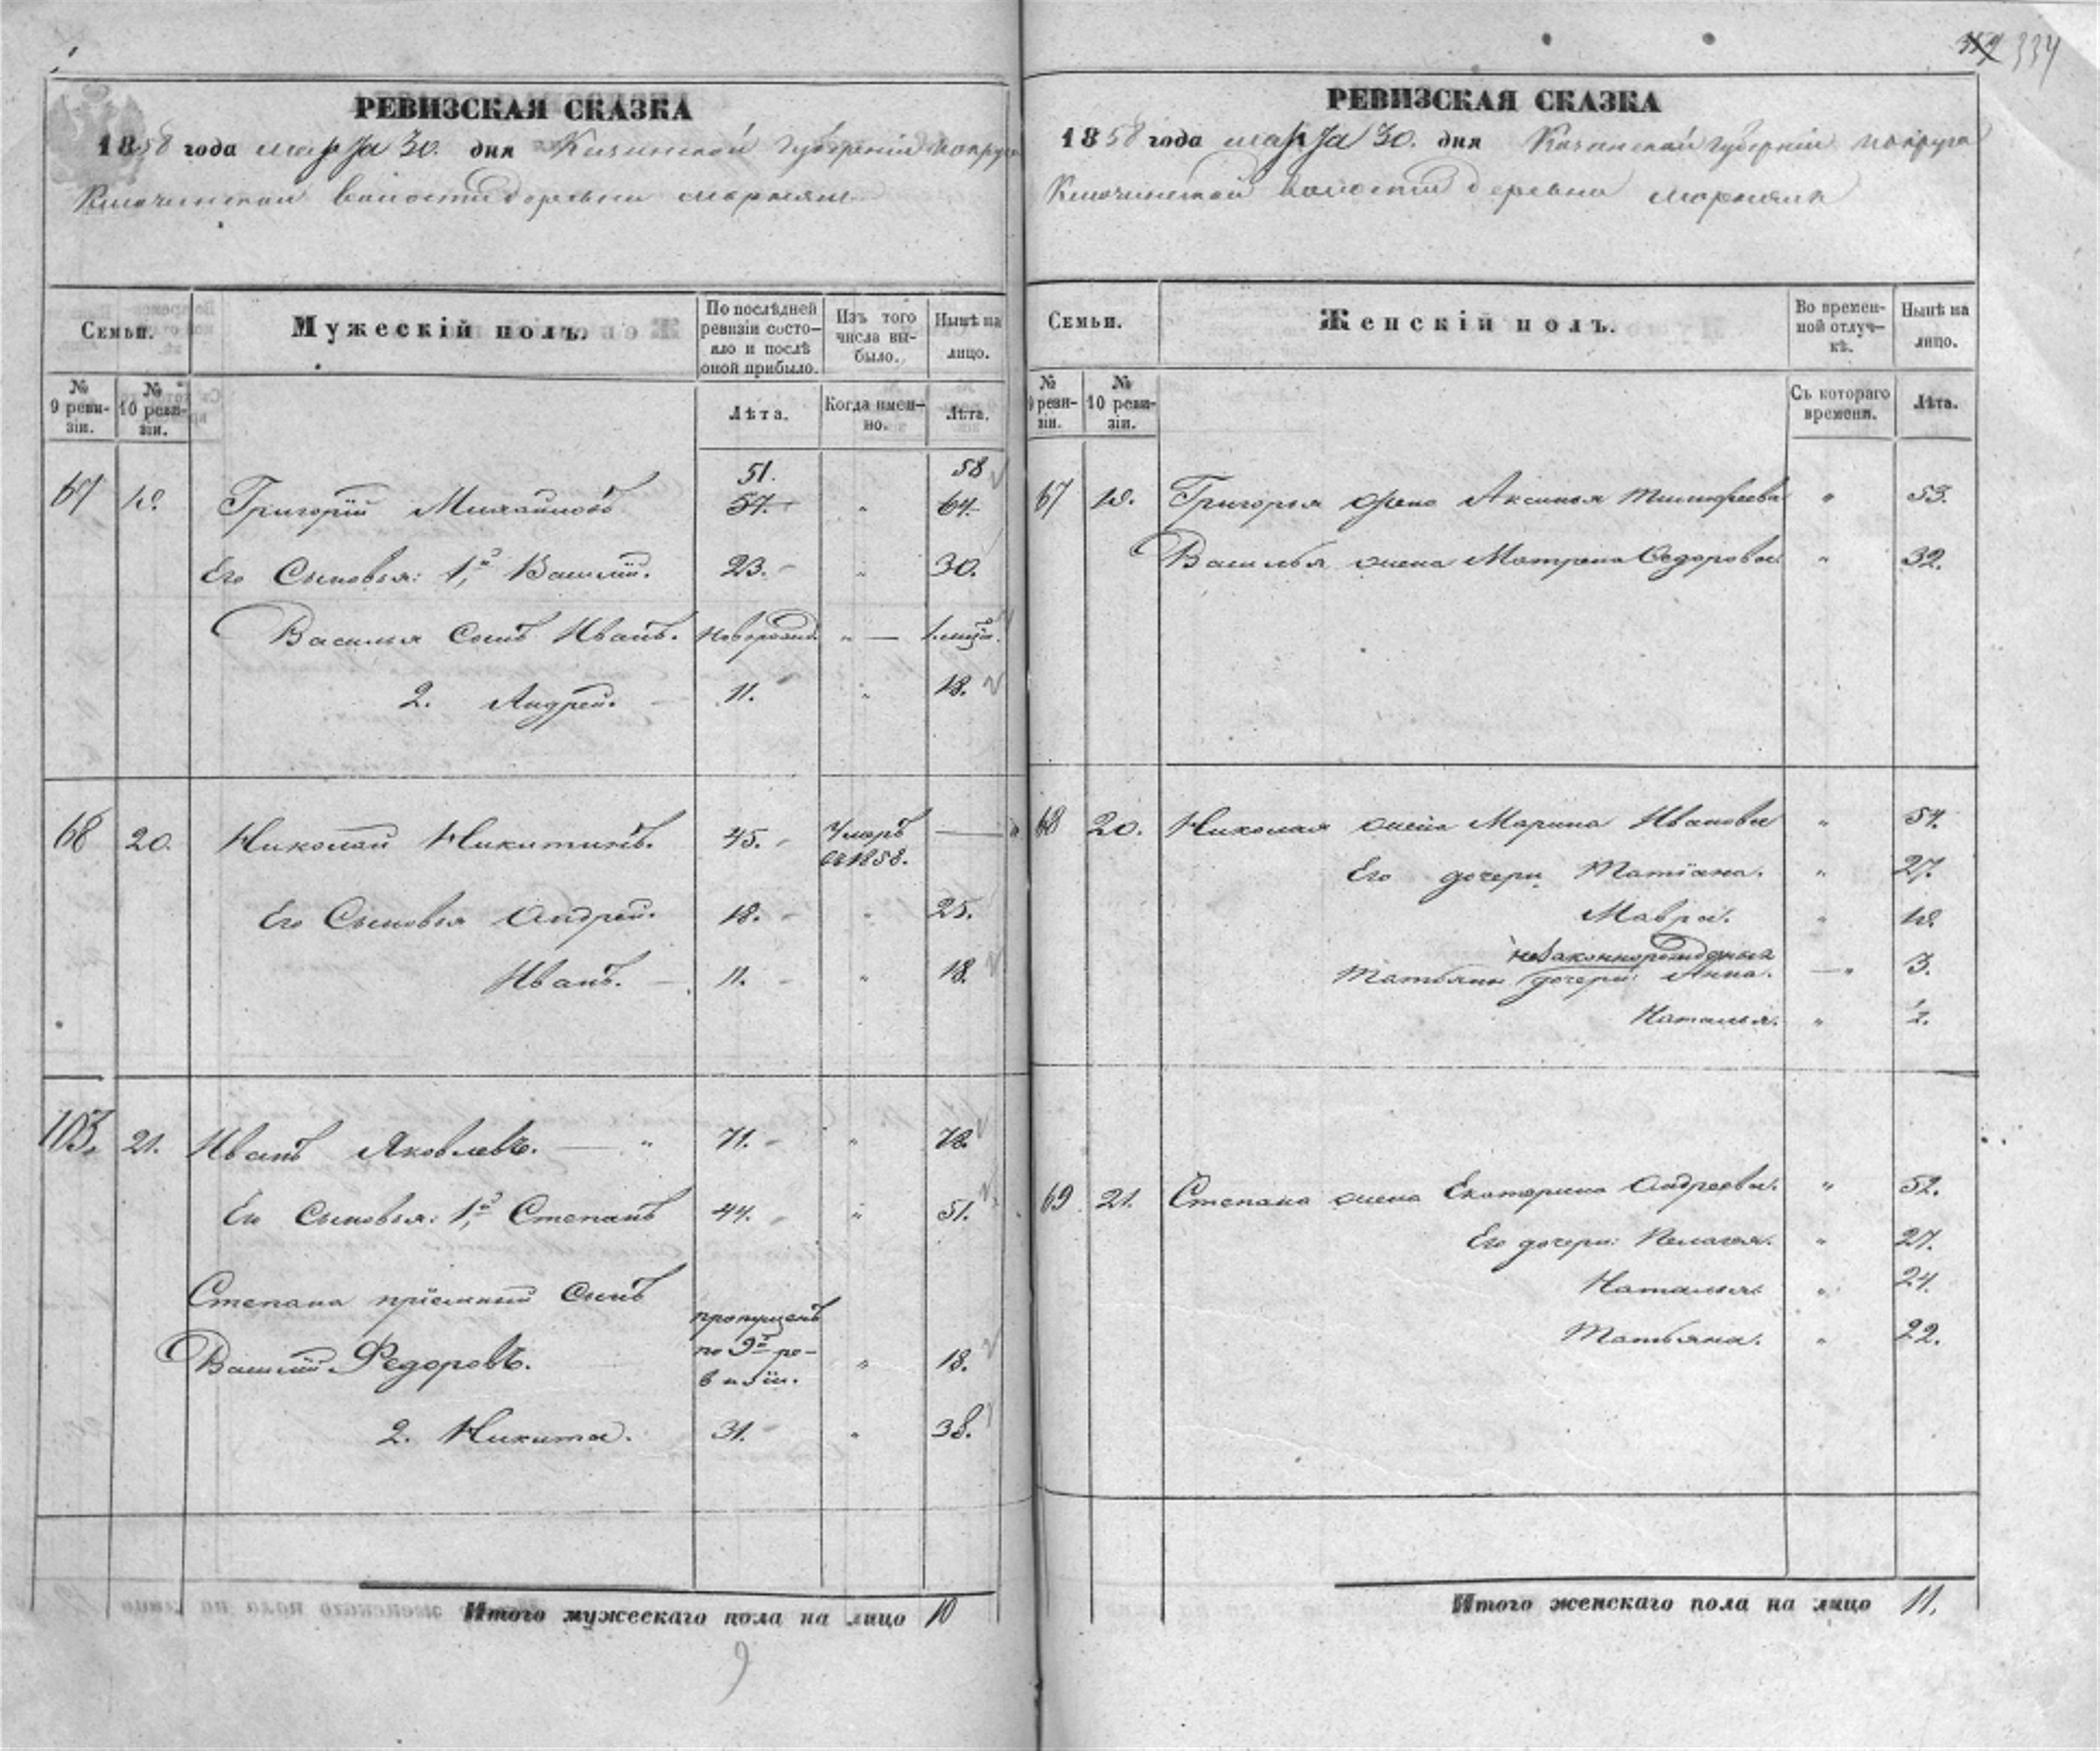 334
РЕВИЗСКАЯ СКАЗКА
1858 года марта 30. дня Казанской губерніи
волости деревни
Семьи.
Мужескій полъ.
По послѣдней ревизіи состояло и послѣ оной прибыло.
Изъ того числа выбыло.
Нынѣ на лицо.
№ 9 ревизіи.
№ 10 ревизіи.
Лѣта.
Когда именно.
Лѣта.
51. 58
67 19. Григорій Михайловъ 57. " 64.
Его Сыновья: 1й Василій. 23. " 30.
Василья Сынъ Иванъ. Новорожд. "
2. Андрей. 11. " 18.
68 20. Николай Никитинъ. 45. Умеръ въ 1858.
Его Сыновья Андрей. 18. " 25.
Иванъ. 11. " 18.
103. 21. Иванъ Яковлевъ. " 71. " 78.
Его Сыновья: 1й Степанъ 44. " 51.
Степана пріемный Сынъ
Василій Федоровъ. пропущенъ по 9й ревизіи. " 18.
2. Никита. 31. " 38.
Итого мужескаго пола на лицо 10
9
РЕВИЗСКАЯ СКАЗКА
1858 года марта 30. дня Казанской губерніи
волости деревни
Семьи.
Женскій полъ.
Во временной отлучкѣ.
Нынѣ на лицо.
№ 9 ревизіи.
№ 10 ревизіи.
Съ котораго времени.
Лѣта.
67 19. Григорья жена Аксинья Тимофеева " 53.
Василья жена Матрена Федорова " 32.
68 20. Николая жена Марина Иванова " 54.
Его дочери Татіана. " 27.
Мавра. " 19.
незаконнорожденныя
Татьяны дочери: Анна. " 3.
Наталья. "
69 21. Степана жена Екатерина Андреева. " 52.
Его дочери: Пелагея. " 27.
Наталья " 24.
Татьяна. " 22.
Итого женскаго пола на лицо 11.